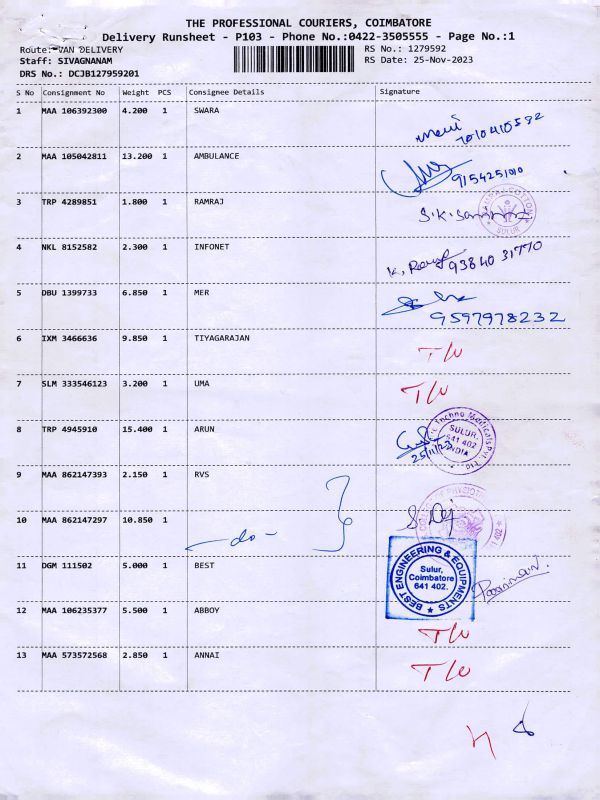 THE PROFESSIONAL COURIERS, COIMBATORE
Delivery Runsheet - P103 - Phone No.:0422-3505555 - Page No.:1
Route: VAN DELIVERY
RS No.: 1279592
Staff: SIVAGNANAM
RS Date: 25-Nov-2023
DRS No.: DCJB127959201
S No Consignment No Weight PCS Consignee Details Signature
1 MAA 106392300 4.200 1 SWARA
7010410592
2 MAA 105042811 13.200 1 AMBULANCE
9154251010
3 TRP 4289851 1.800 1 RAMRAJ
S.K.
SULUR
4 NKL 8152582 2.300 1 INFONET
K. 93840 31770
5 DBU 1399733 6.850 1 MER
9597978232
6 IXM 3466636 9.850 1 TIYAGARAJAN
T/W
7 SLM 333546123 3.200 1 UMA
T/W
8 TRP 4945910 15.400 1 ARUN
Techno Medicals Pvt. Ltd
SULUR,
641 402
INDIA
25/11/23
9 MAA 862147393 2.150 1 RVS
10 MAA 862147297 10.850 1
-do-
11 DGM 111502 5.000 1 BEST
BEST ENGINEERING & EQUIPMENTS
Sulur,
Coimbatore
641 402.
12 MAA 106235377 5.500 1 ABBOY
T/W
13 MAA 573572568 2.850 1 ANNAI
T/W